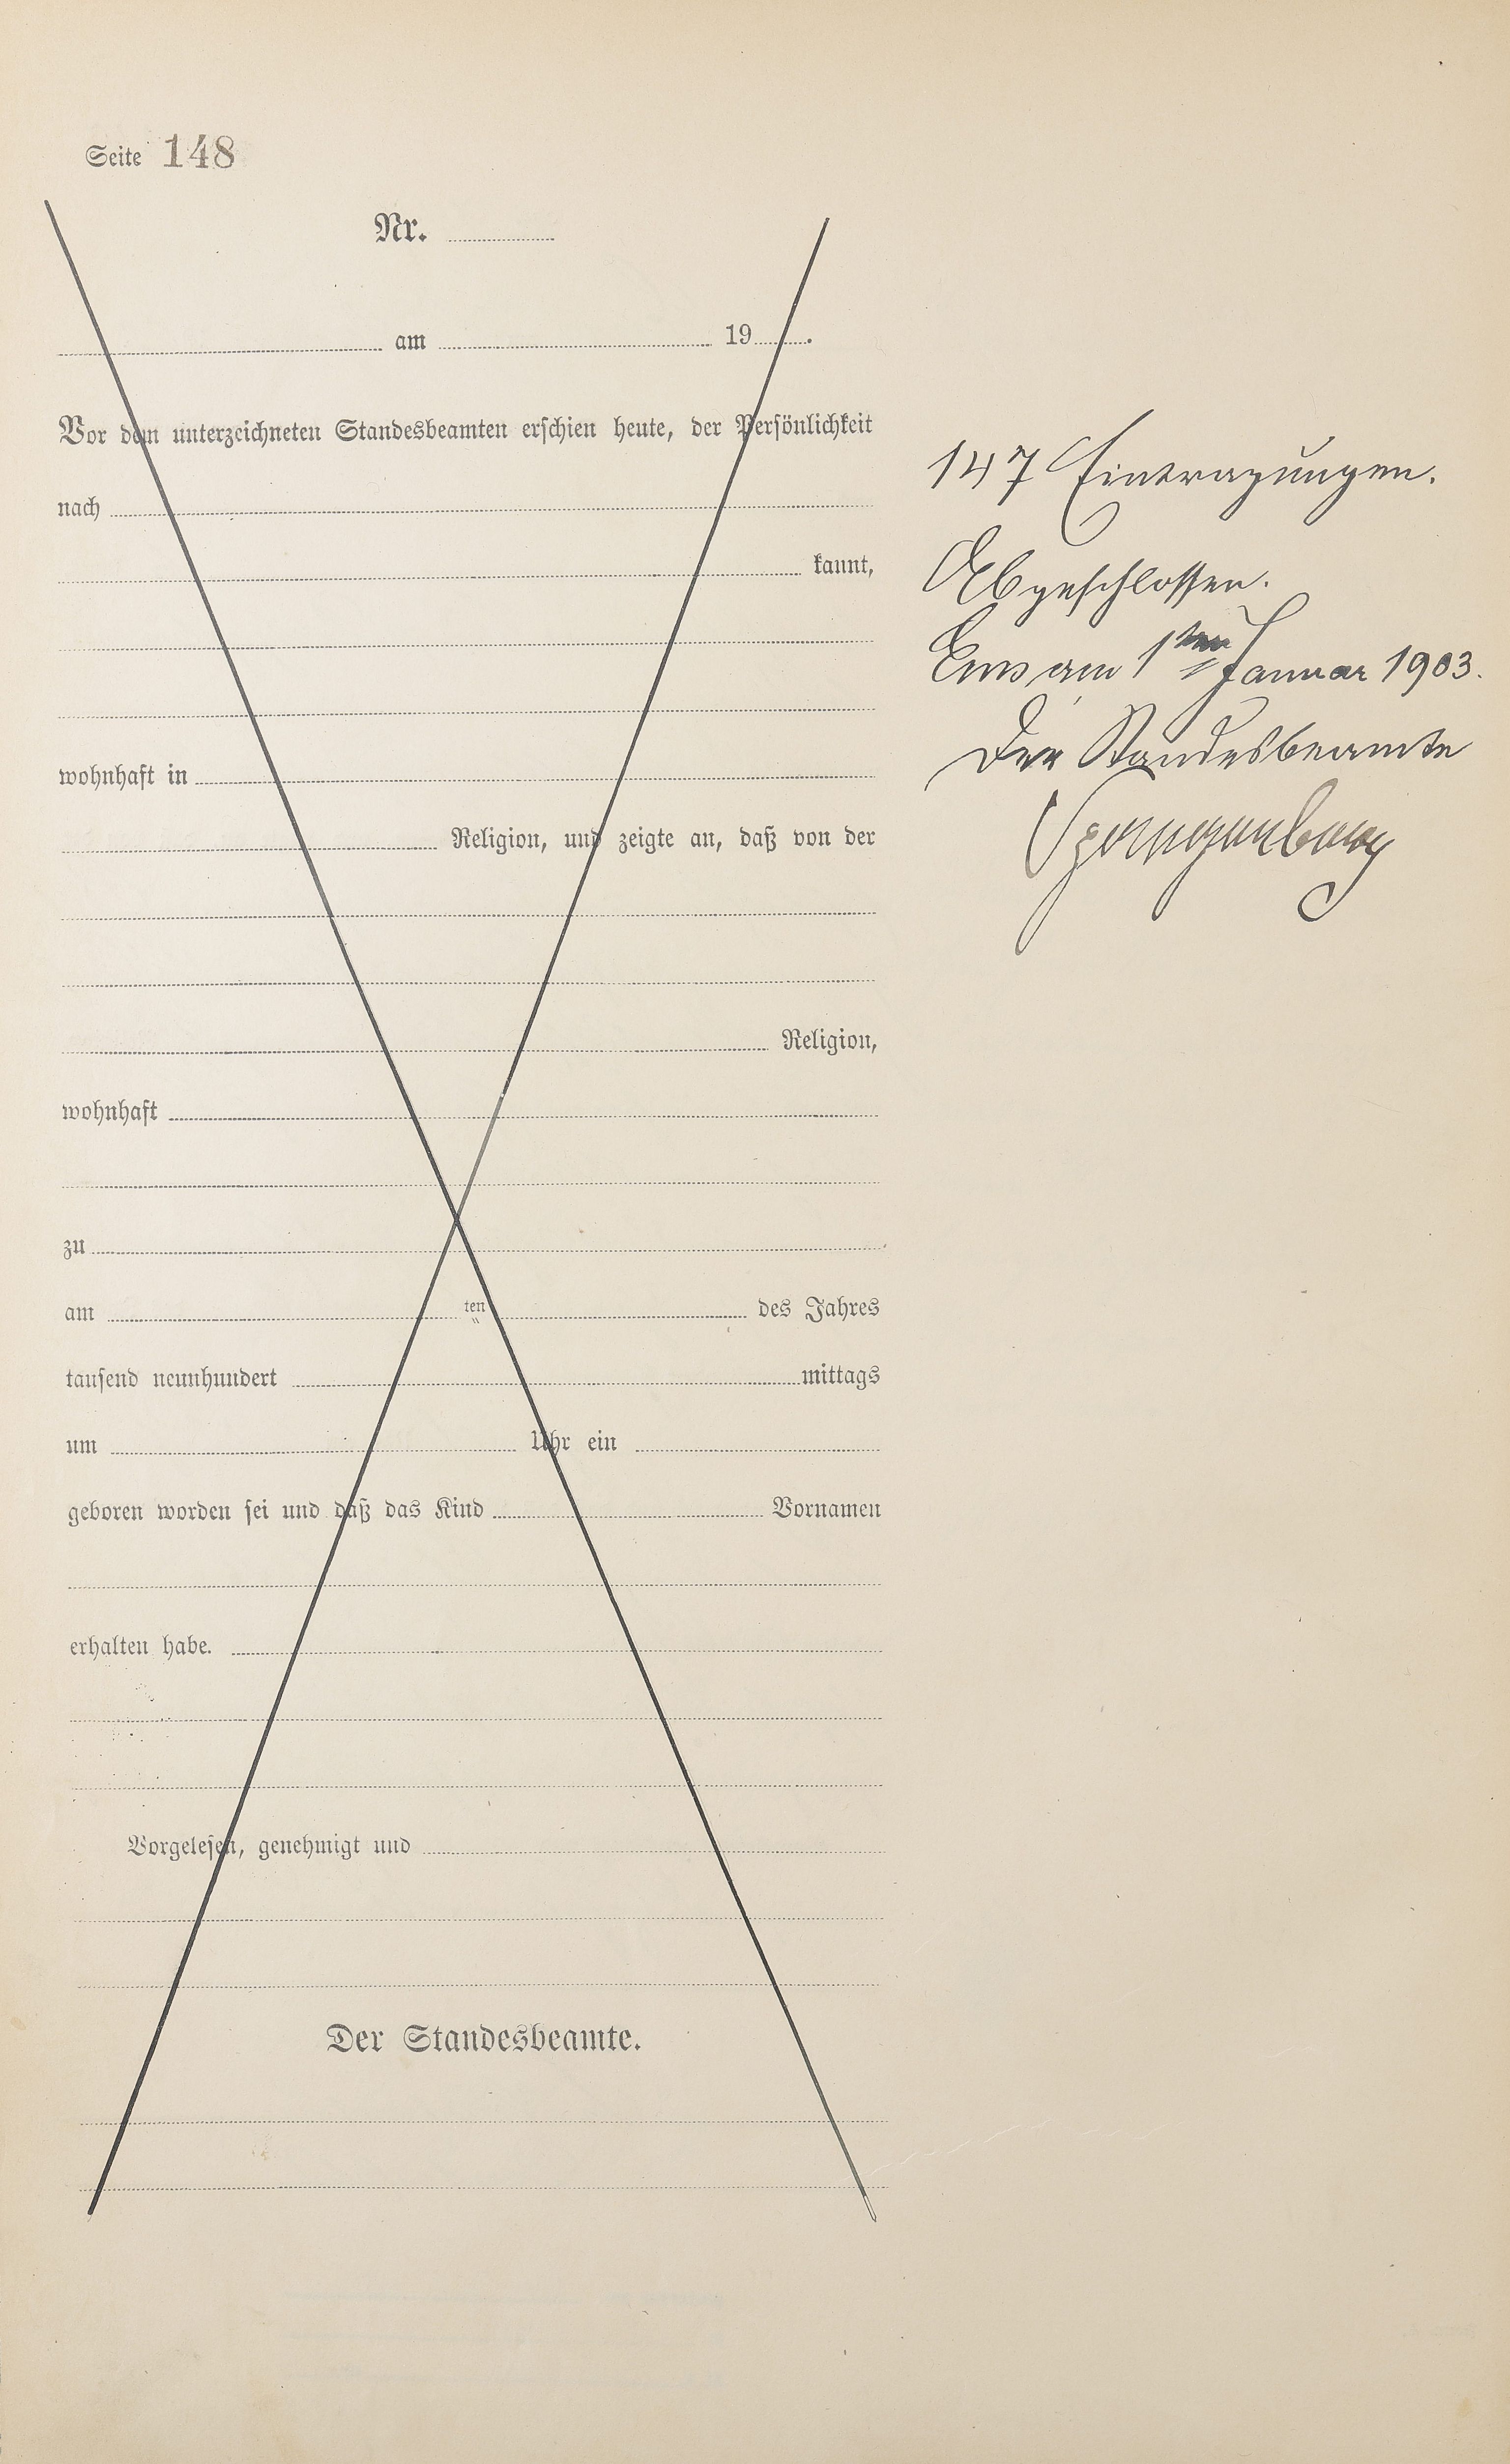 Seite 148
Nr.
am 19 .
Vor dem unterzeichneten Standesbeamten erschien heute, der Persönlichkeit
nach
kannt,
wohnhaft in
Religion, und zeigte an, daß von der
Religion,
wohnhaft
zu
am ten des Jahres
tausend neunhundert mittags
um Uhr ein
geboren worden sei und daß das Kind Vornamen
erhalten habe.
Vorgelesen, genehmigt und
Der Standesbeamte.
147 Eintragungen.
Abgeschlossen.
Ems am 1ten Januar 1903.
Der Standesbeamte
Spangenberg